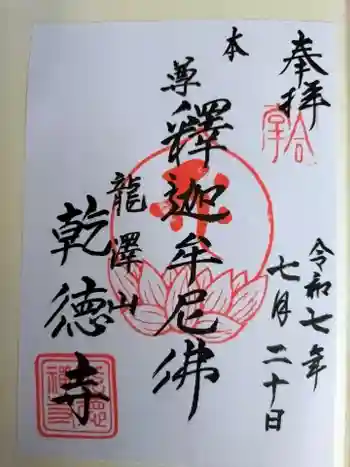 奉拝
令和七年
七月二十日
本尊
釋迦牟尼佛
龍澤山
乾德寺